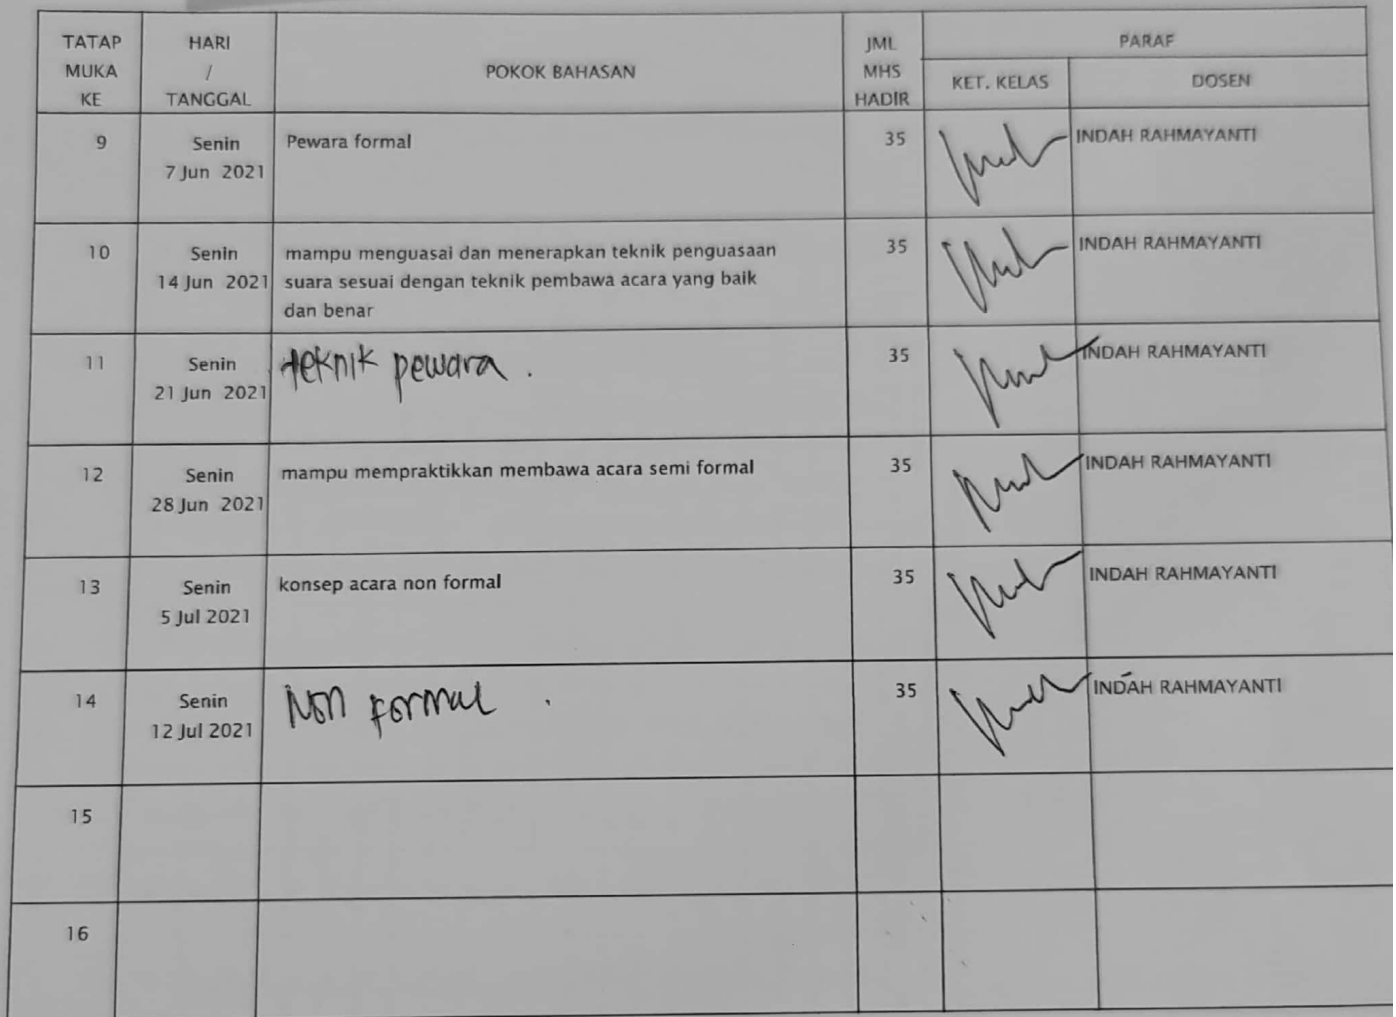 TATAP MUKA KE
HARI / TANGGAL
POKOK BAHASAN
JML MHS HADIR
PARAF
KET. KELAS
DOSEN
9
Senin
7 Jun 2021
Pewara formal
35
INDAH RAHMAYANTI
10
Senin
14 Jun 2021
mampu menguasai dan menerapkan teknik penguasaan
suara sesuai dengan teknik pembawa acara yang baik
dan benar
35
INDAH RAHMAYANTI
11
Senin
21 Jun 2021
teknik pewara .
35
INDAH RAHMAYANTI
12
Senin
28 Jun 2021
mampu mempraktikkan membawa acara semi formal
35
INDAH RAHMAYANTI
13
Senin
5 Jul 2021
konsep acara non formal
35
INDAH RAHMAYANTI
14
Senin
12 Jul 2021
Non formal .
35
INDAH RAHMAYANTI
15
16